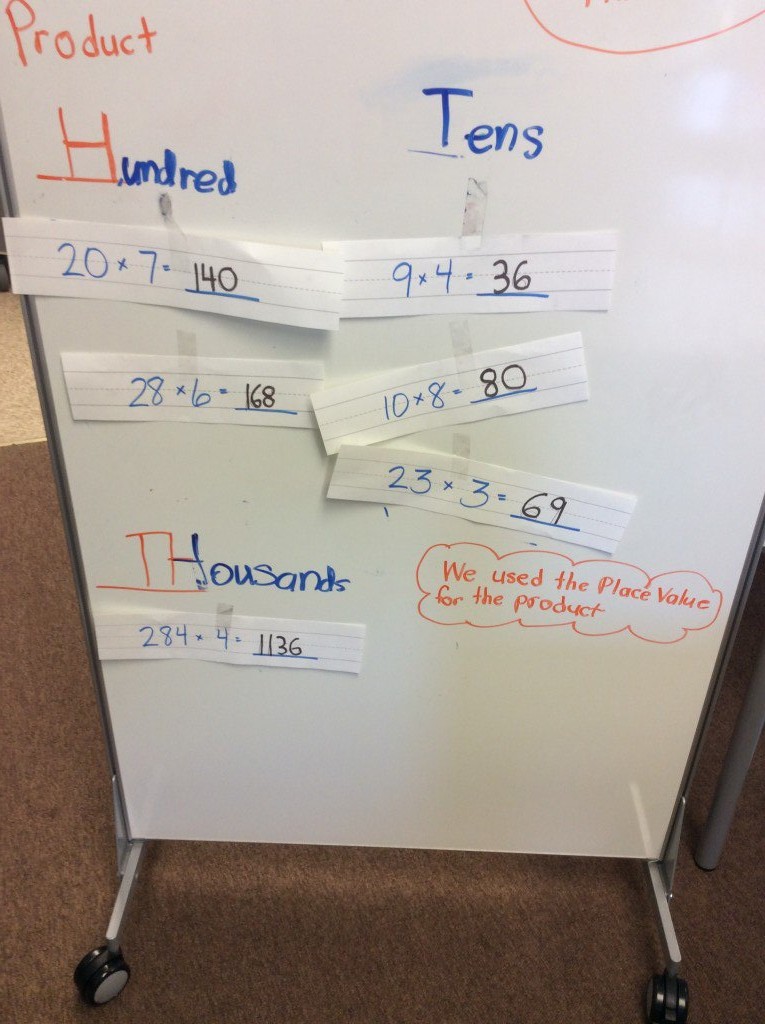 Product
Hundred
20 × 7 = 140
28 × 6 = 168
Tens
9 × 4 = 36
10 × 8 = 80
23 × 3 = 69
THousands
284 × 4 = 1136
We used the Place Value
for the product